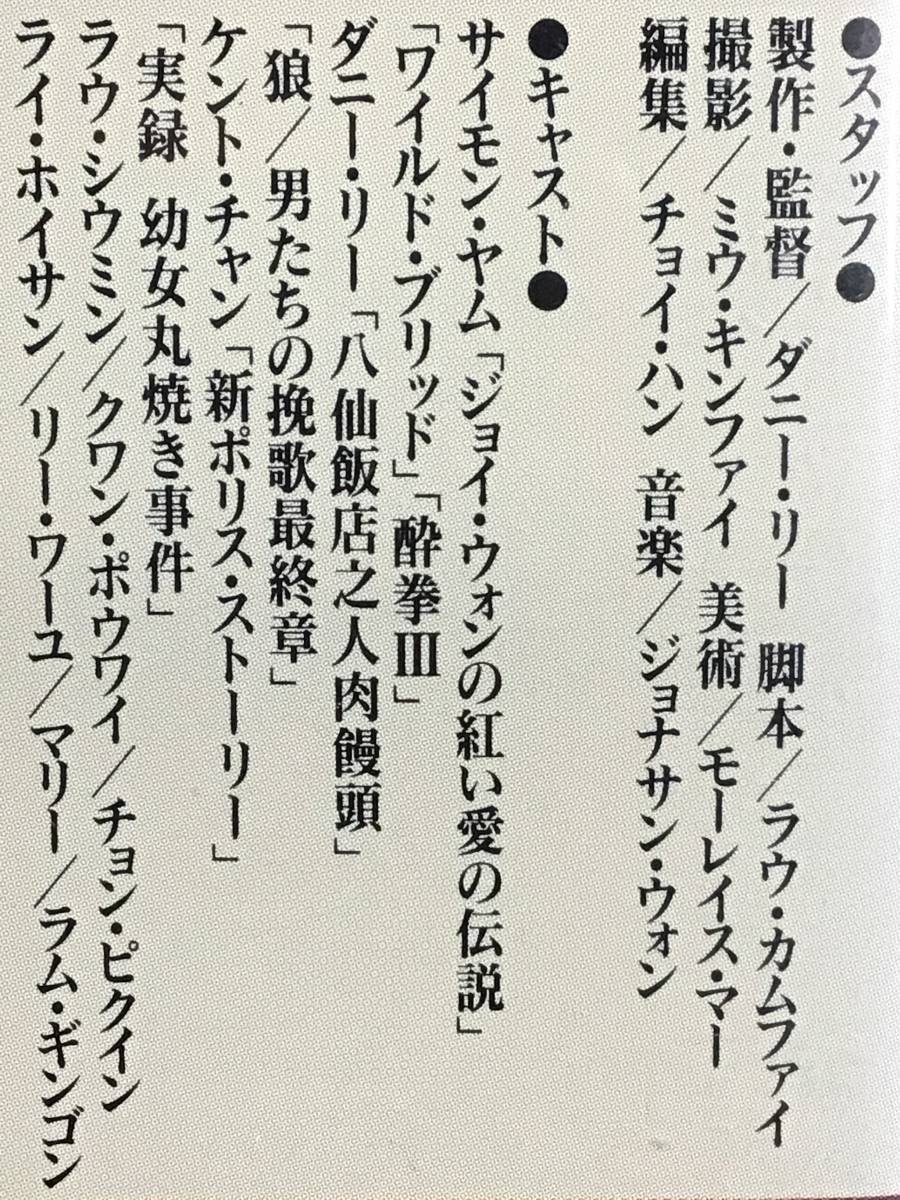 ●スタッフ●
製作・監督/ダニー・リー　脚本/ラウ・カムファイ
撮影/ミウ・キンファイ　美術/モーレイス・マー
編集/チョイ・ハン　音楽/ジョナサン・ウォン
●キャスト●
サイモン・ヤム「ジョイ・ウォンの紅い愛の伝説」
「ワイルド・ブリッド」「酔拳Ⅲ」
ダニー・リー「八仙飯店之人肉饅頭」
「狼/男たちの挽歌最終章」
ケント・チャン「新ポリス・ストーリー」
「実録　幼女丸焼き事件」
ラウ・シウミン/クワン・ポウワイ/チョン・ピクイン
ライ・ホイサン/リー・ワーユ/マリー/ラム・ギンゴン